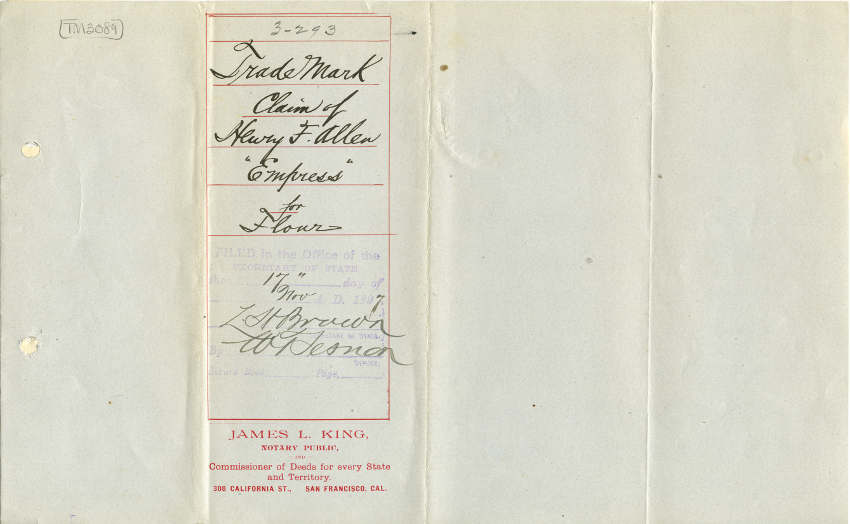 TM3089
3-293
Trade Mark
Claim of
Henry F. Allen
"Empress"
for
Flour
FILED in the Office of the
SECRETARY OF STATE
the 17" day of
Nov A. D. 1897,
L. H. Brown
SECRETARY OF STATE
By
DEPUTY.
Record Book Page,
JAMES L. KING,
NOTARY PUBLIC,
AND
Commissioner of Deeds for every State
and Territory.
308 CALIFORNIA ST., SAN FRANCISCO, CAL.